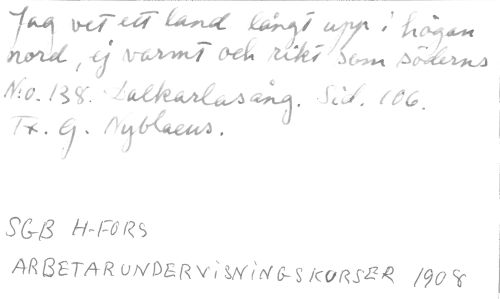 Jag vet ett land långt upp i högan
nord, ej varmt och rikt som söderns
N:o. 138. Dalkarlasång. Sid. 106.
Tx. G. Nyblaeus.
SGB H-FORS
ARBETARUNDERVISNINGSKURSER 1908